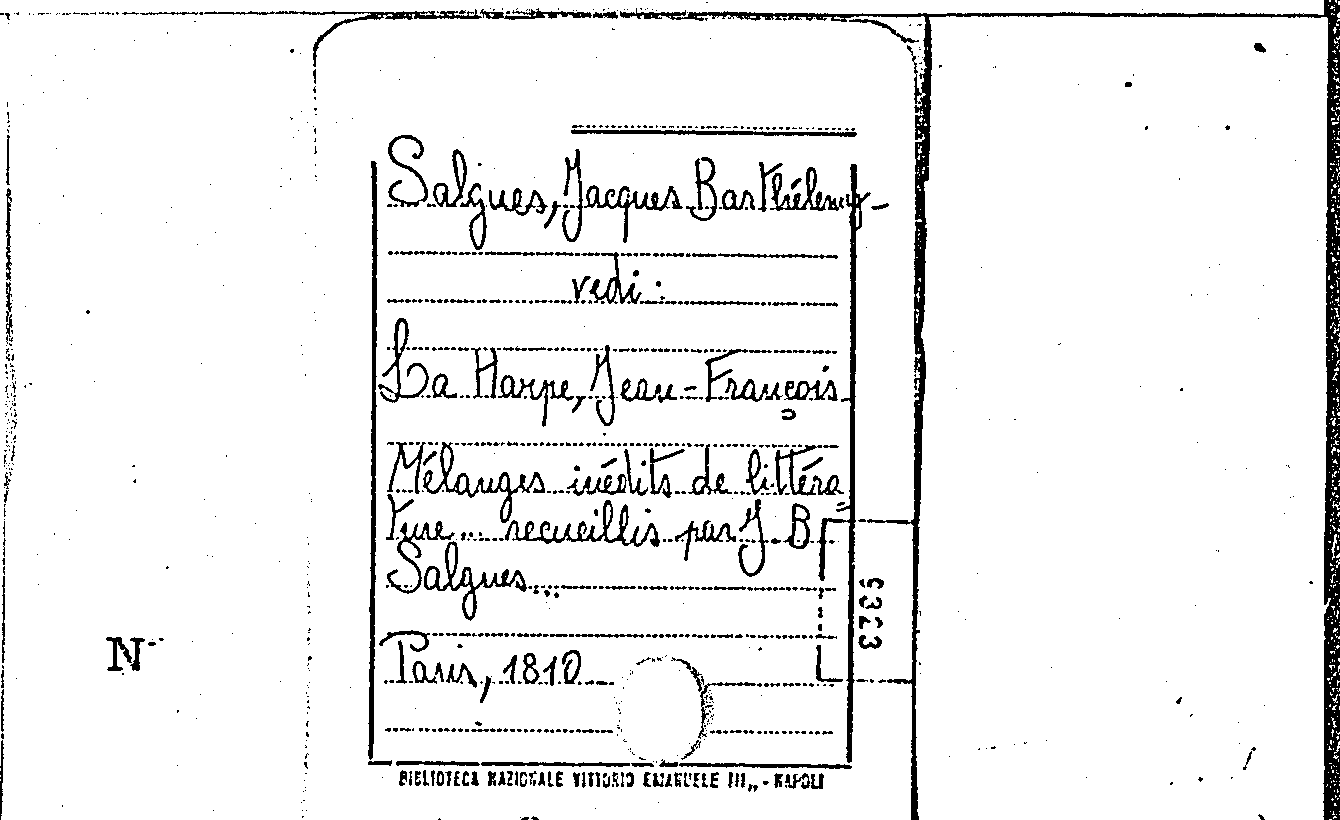 Salgues, Jacques Barthélemy-
vedi:
La Harpe, Jean-François.
Mélanges inédits de littéra=
ture... recueillis par J. B.
Salgues...
Paris, 1810
9323
N
BIBLIOTECA NAZIONALE VITTORIO EMANUELE III„ - NAPOLI